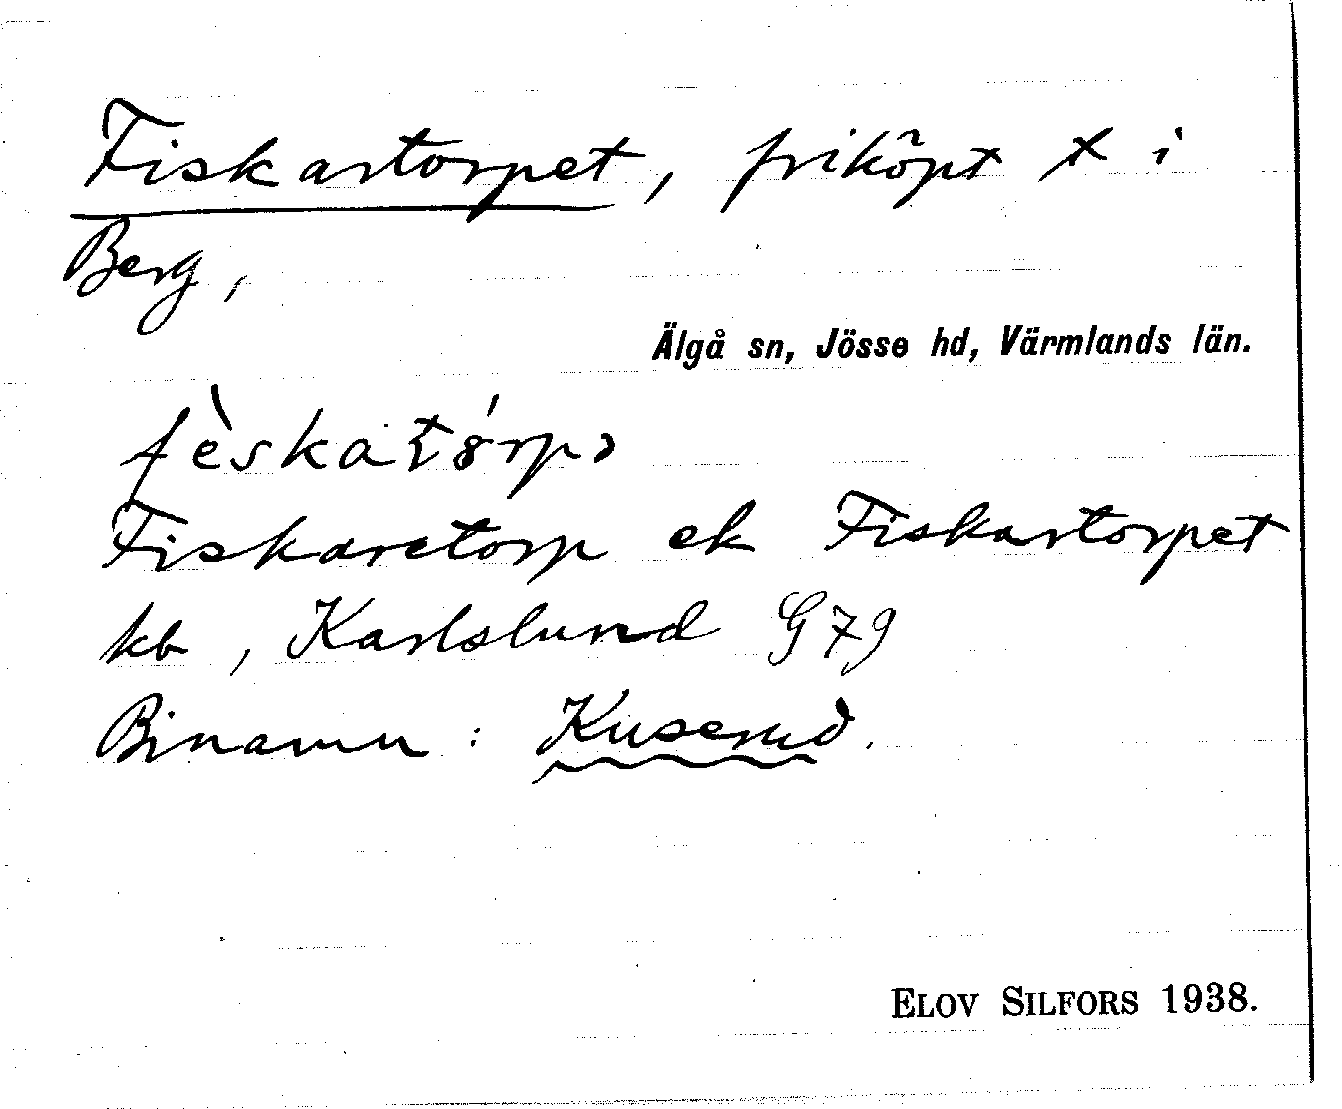 Fiskartorpet, friköpt t i
Berg,
Älgå sn, Jösse hd, Värmlands län.
fèskatórpə
Fiskaretorp ek Fiskartorpet
kb, Karlslund G79
Binamn: Kuserud.
ELOV SILFORS 1938.